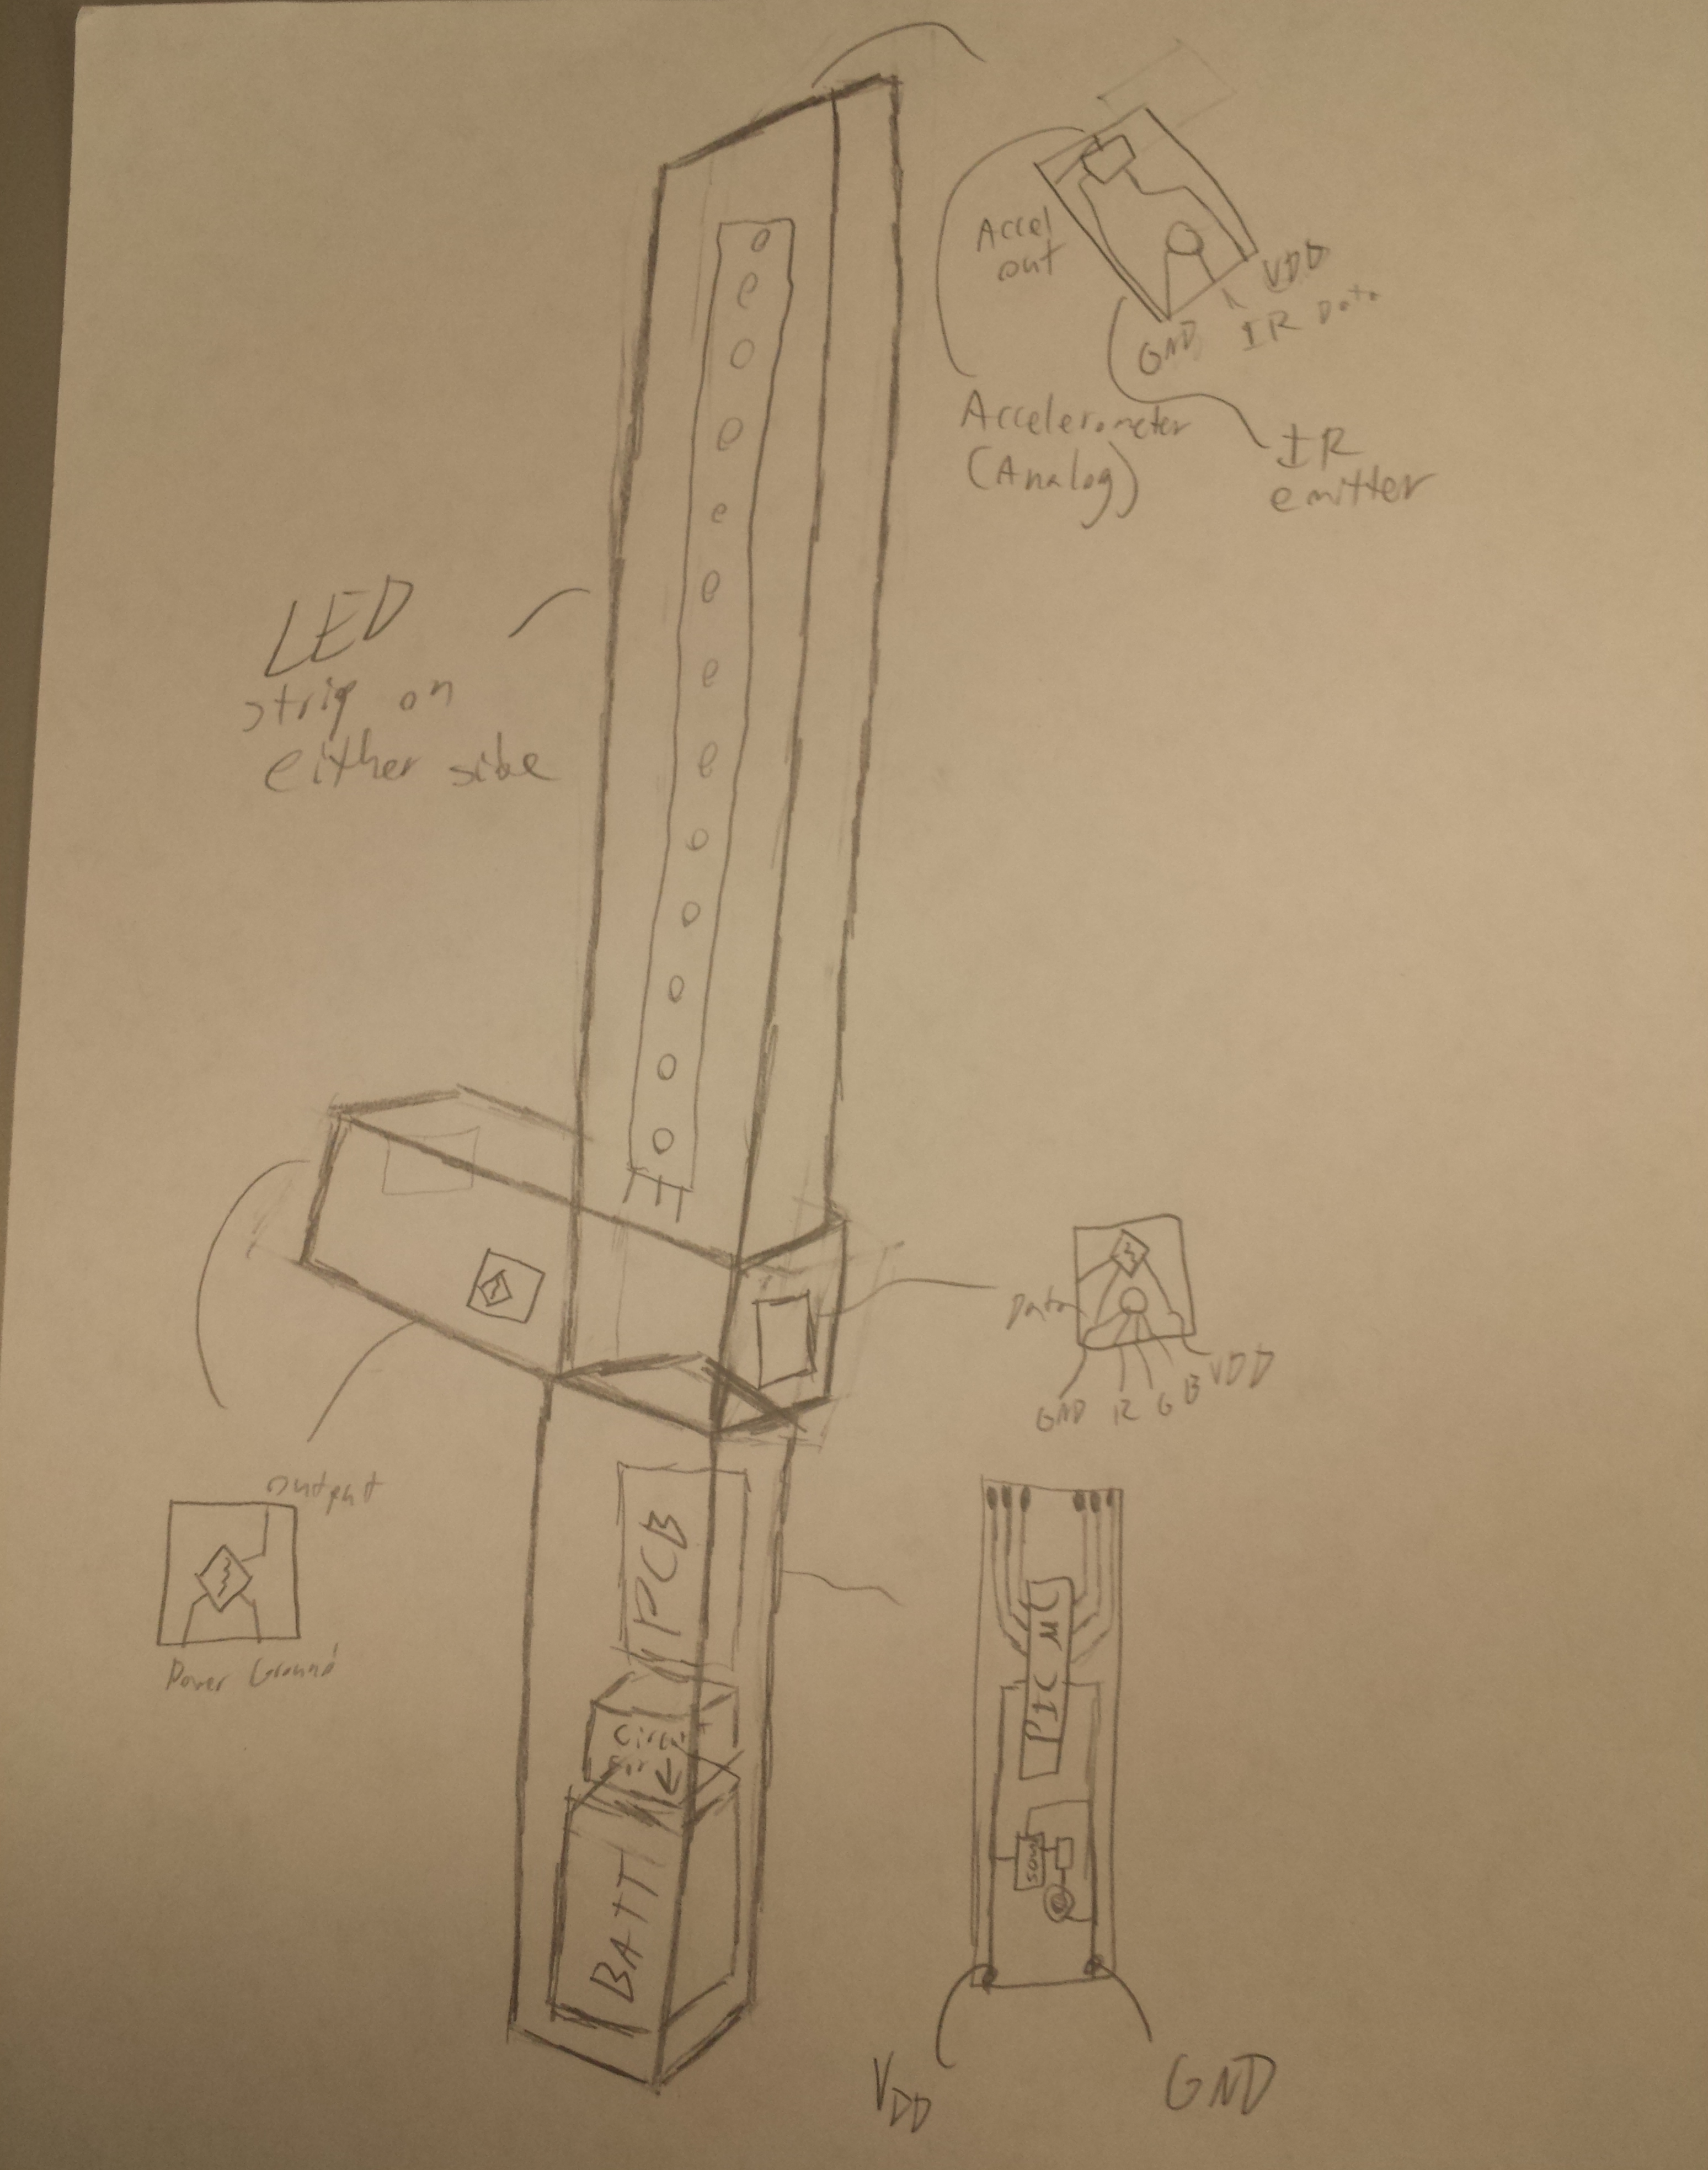 Accel
out
VDD
IR Data
GND
Accelerometer
(Analog)
IR
emitter
LED
strip on
either side
Data
GND
R
G
B
VDD
output
Power Ground
PCB
BATT
PIC
VDD
GND